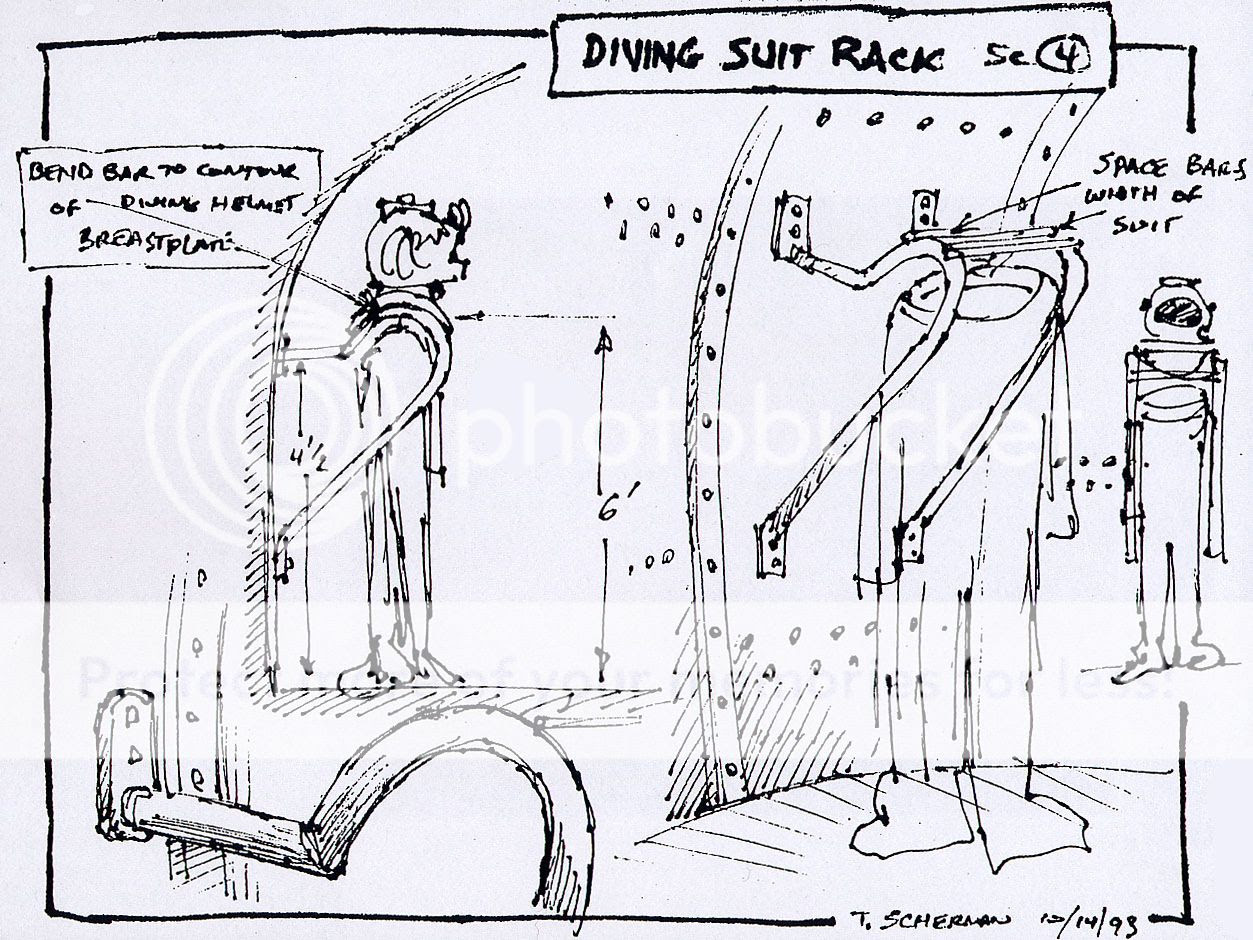 DIVING SUIT RACK SC 4
BEND BAR TO CONTOUR
OF DIVING HELMET
BREASTPLATE
SPACE BARS
WIDTH OF
SUIT
4 1/2
6'
photobucket
Protect more of your memories for less!
T. SCHERMAN 10/14/93